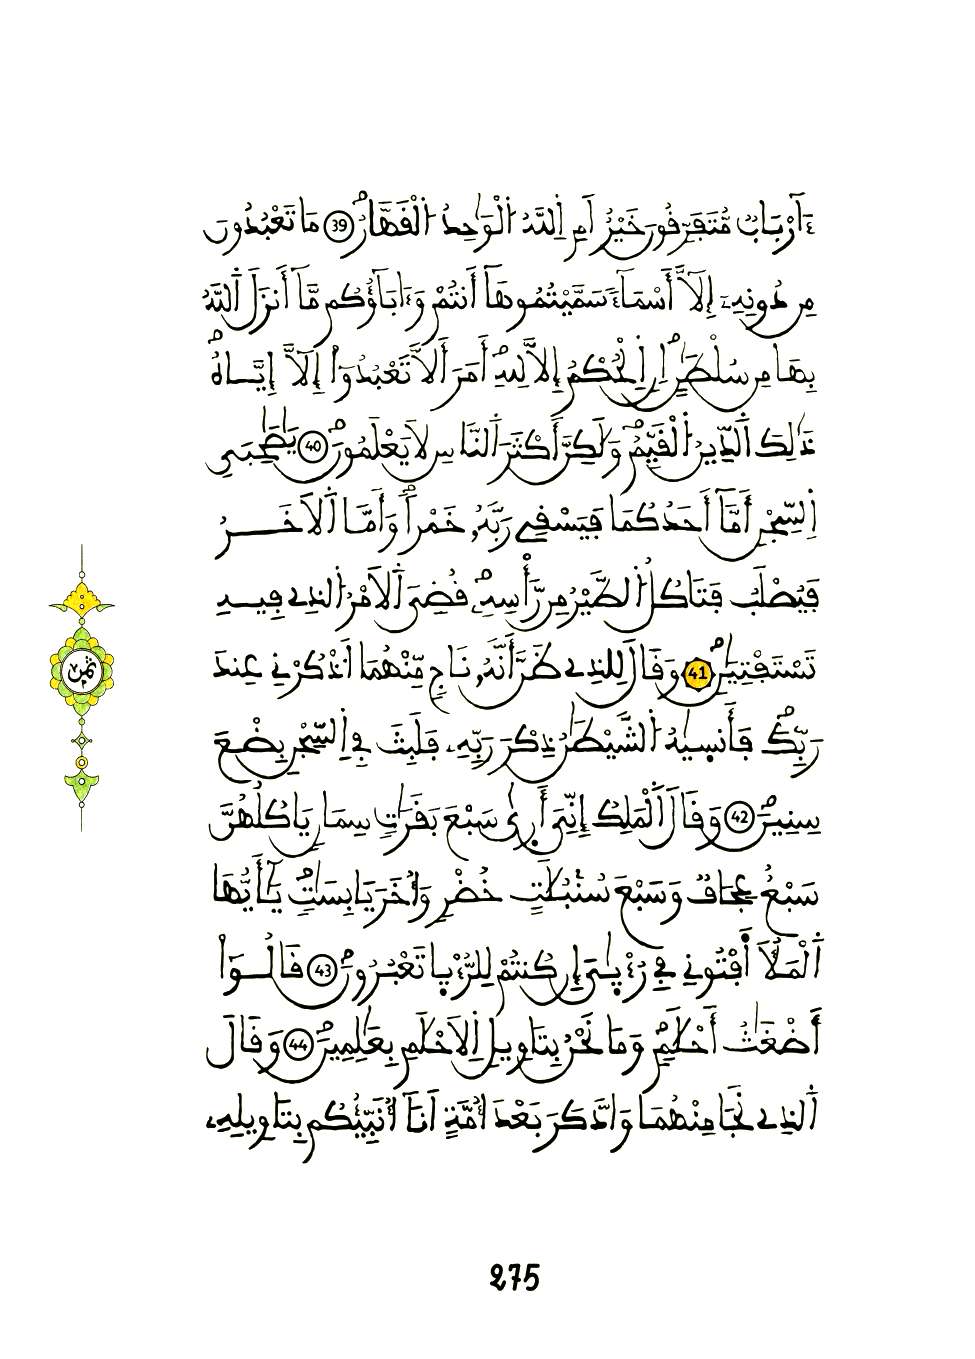 ءَآرْبَابٞ مُّتَفَرِّقُونَ خَيْرٌ اَمِ اِ۬للَّهُ اُ۬لْوَٰحِدُ اُ۬لْقَهَّارُۖ 39 مَا تَعْبُدُونَ
مِن دُونِهِۦٓ إِلَّآ أَسْمَآءٗ سَمَّيْتُمُوهَآ أَنتُمْ وَءَابَآؤُكُم مَّآ أَنزَلَ اَ۬للَّهُ
بِهَا مِن سُلْطَٰنٍۖ اِنِ اِ۬لْحُكْمُ إِلَّا لِلهِۖ أَمَرَ أَلَّا تَعْبُدُوٓاْ إِلَّآ إِيَّاهُۖ
ذَٰلِكَ اَ۬لدِّينُ اُ۬لْقَيِّمُۖ وَلَٰكِنَّ أَكْثَرَ اَ۬لنَّاسِ لَا يَعْلَمُونَۖ 40 يَٰصَٰحِبَيِ
اِ۬لسِّجْنِ أَمَّآ أَحَدُكُمَا فَيَسْقِے رَبَّهُۥ خَمْراٗۖ وَأَمَّا اَ۬لَاخَرُ
فَيُصْلَبُ فَتَاكُلُ اُ۬لطَّيْرُ مِن رَّأْسِهِۦۖ قُضِيَ اَ۬لَامْرُ اُ۬لذِے فِيهِ
تَسْتَفْتِيَٰنِۖ 41 وَقَالَ لِلذِے ظَنَّ أَنَّهُۥ نَاجٖ مِّنْهُمَا اَ۟ذْكُرْنِے عِندَ
رَبِّكَۖ فَأَنس۪يٰهُ اُ۬لشَّيْطَٰنُ ذِكْرَ رَبِّهِۦ فَلَبِثَ فِے اِ۬لسِّجْنِ بِضْعَ
سِنِينَۖ 42 وَقَالَ اَ۬لْمَلِكُ إِنِّيَ أَر۪يٰ سَبْعَ بَقَرَٰتٖ سِمَانٖ يَاكُلُهُنَّ
سَبْعٌ عِجَافٞ وَسَبْعَ سُنۢبُلَٰتٍ خُضْرٖ وَأُخَرَ يَابِسَٰتٖۖ يَٰٓأَيُّهَا
اَ۬لْمَلَأُ اَ۬فْتُونِے فِے رُءْيٰ۪يَ إِن كُنتُمْ لِلرُّءْي۪ا تَعْبُرُونَۖ 43 قَالُوٓاْ
أَضْغَٰثُ أَحْلَٰمٖۖ وَمَا نَحْنُ بِتَاوِيلِ اِ۬لَاحْلَٰمِ بِعَٰلِمِينَۖ 44 وَقَالَ
اَ۬لذِے نَجَا مِنْهُمَا وَادَّكَرَ بَعْدَ أُمَّةٍ اَنَآ أُنَبِّئُكُم بِتَاوِيلِهِۦ
ثمن
275